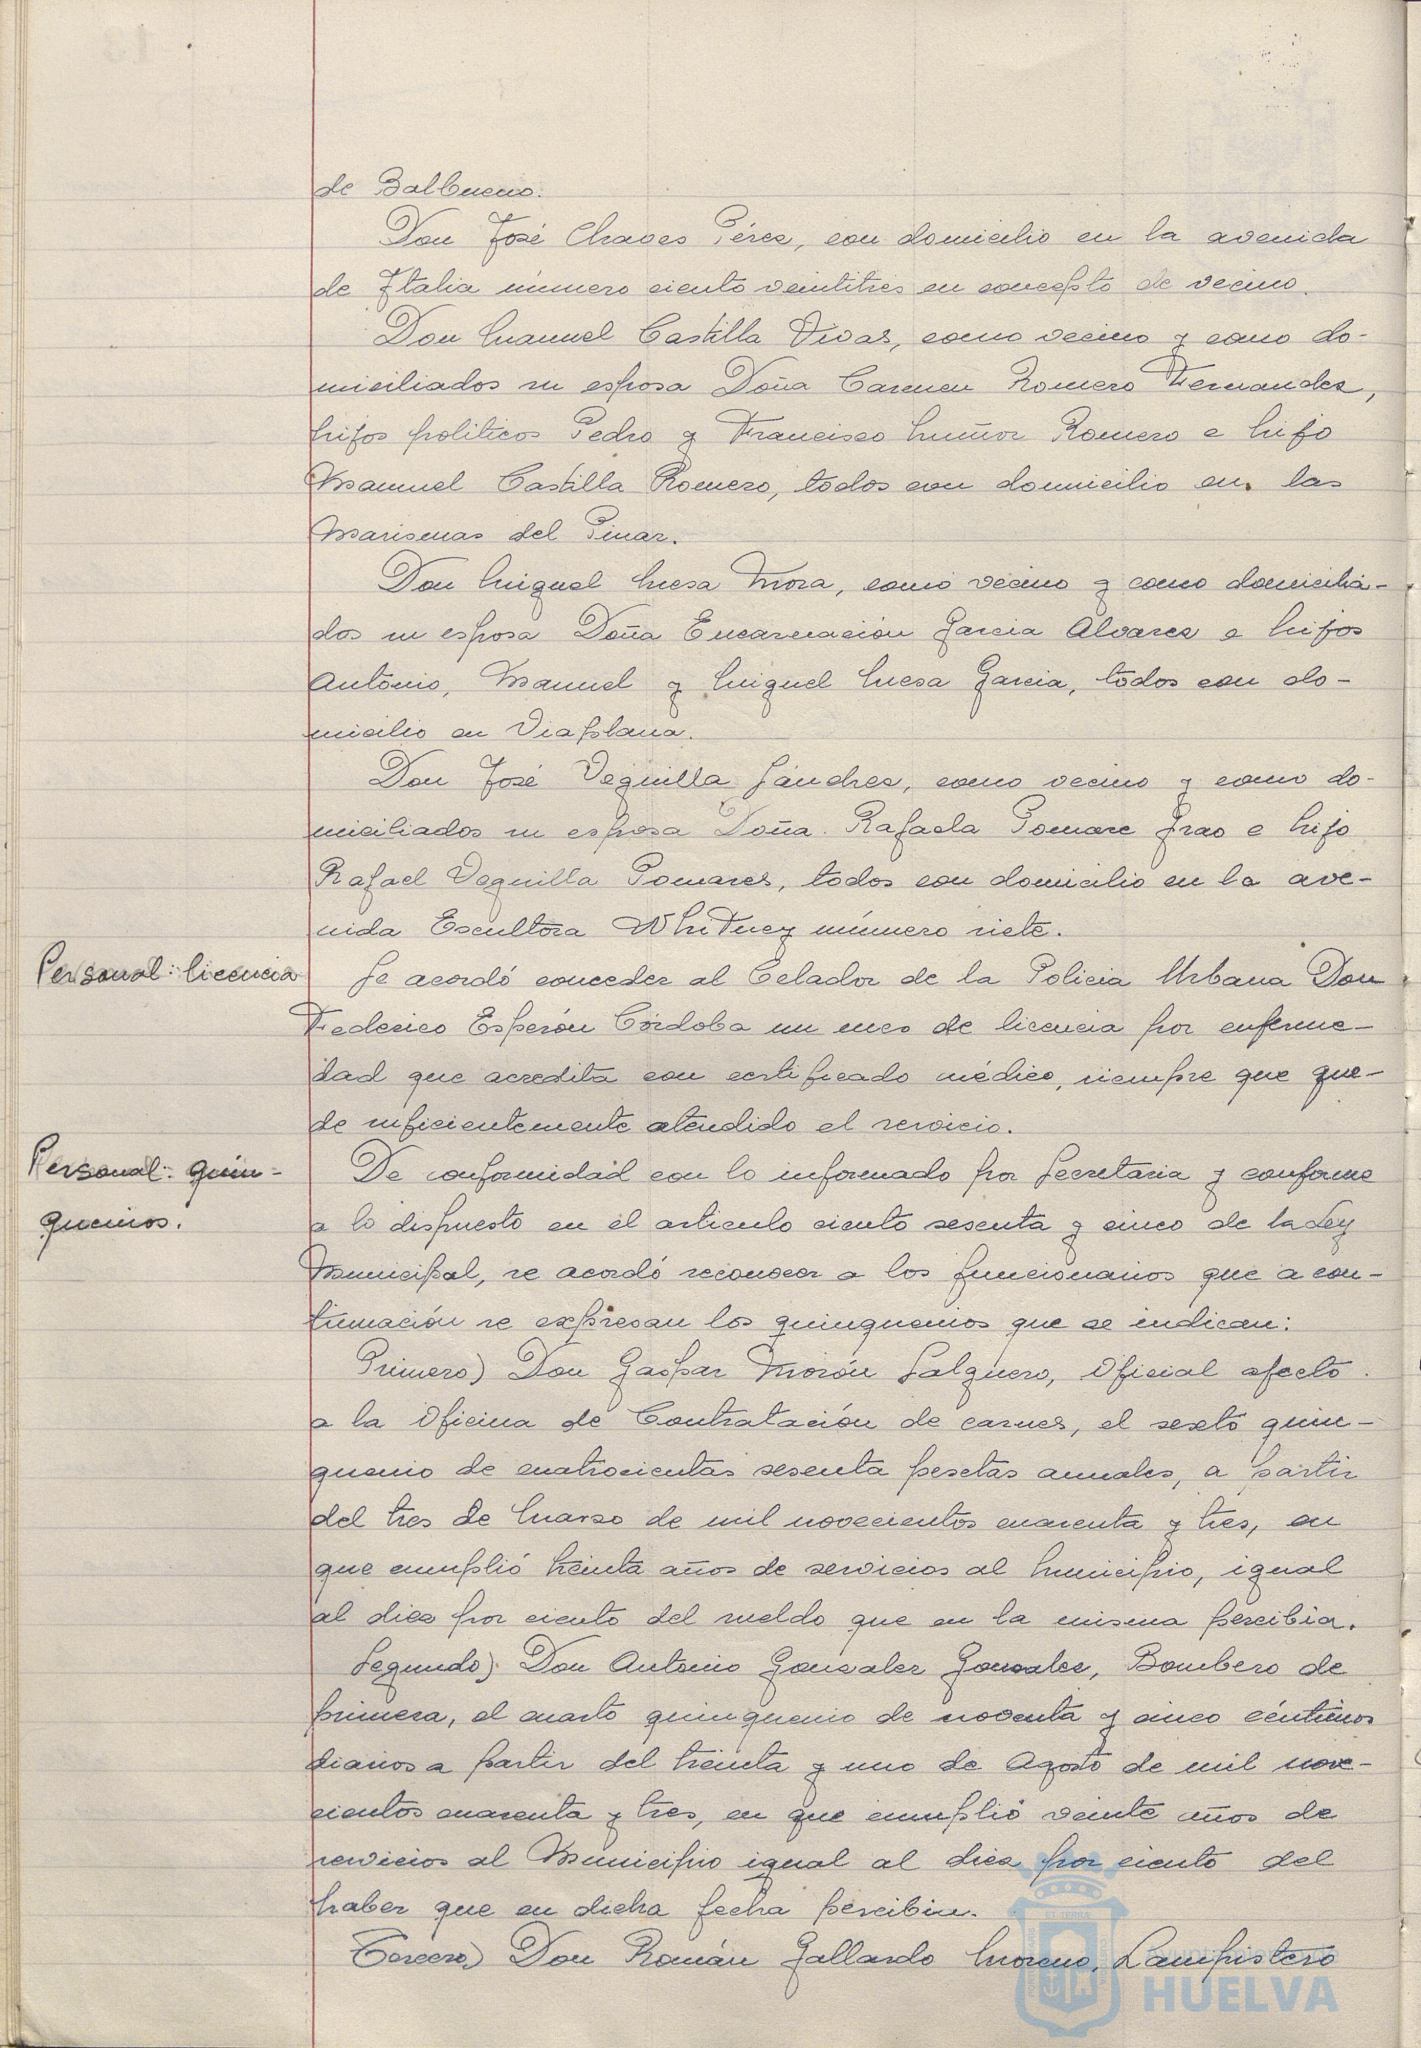 de Balbueno.
Don José Chaves Pérez, con domicilio en la avenida
de Italia número ciento veintitres en concepto de vecino.
Don Manuel Castilla Vivas, como vecino y como do-
miciliados su esposa Doña Carmen Romero Fernandez,
hijos politicos Pedro y Francisco Muñoz Romero e hijo
Manuel Castilla Romero, todos con domicilio en las
Marismas del Pinar.
Don Miguel Mesa Mora, como vecino y como domicilia-
dos su esposa Doña Encarnación Garcia Alvarez e hijos
Antonio, Manuel y Miguel Mesa Garcia, todos con do-
micilio en Viaplana.
Don José Veguilla Sánchez, como vecino y como do-
miciliados su esposa Doña Rafaela Pomare Grao e hijo
Rafael Veguilla Pomares, todos con domicilio en la ave-
nida Escultora Whitney número siete.
Personal: licencia
Se acordó conceder al Celador de la Policia Urbana Don
Federico Esperón Córdoba un mes de licencia por enferme-
dad que acredita con certificado médico, siempre que que-
de suficientemente atendido el servicio.
Personal: quin-
quenios.
De conformidad con lo informado por Secretaria y conforme
a lo dispuesto en el articulo ciento sesenta y cinco de la Ley
Municipal, se acordó reconocer a los funcionarios que a con-
tinuación se expresan los quinquenios que se indican:
Primero) Don Gaspar Morón Salguero, Oficial afecto
a la Oficina de Contratación de carnes, el sexto quin-
quenio de cuatrocientas sesenta pesetas anuales, a partir
del tres de Marzo de mil novecientos cuarenta y tres, en
que cumplió treinta años de servicios al Municipio, igual
al diez por ciento del sueldo que en la misma percibia.
Segundo) Don Antonio Gonzalez Gonzalez, Bombero de
primera, el cuarto quinquenio de noventa y cinco céntimos
diarios a partir del treinta y uno de Agosto de mil nove-
cientos cuarenta y tres, en que cumplió veinte años de
servicios al Municipio igual al diez por ciento del
haber que en dicha fecha percibia.
Tercero) Don Román Gallardo Moreno, Lampistero
HUELVA